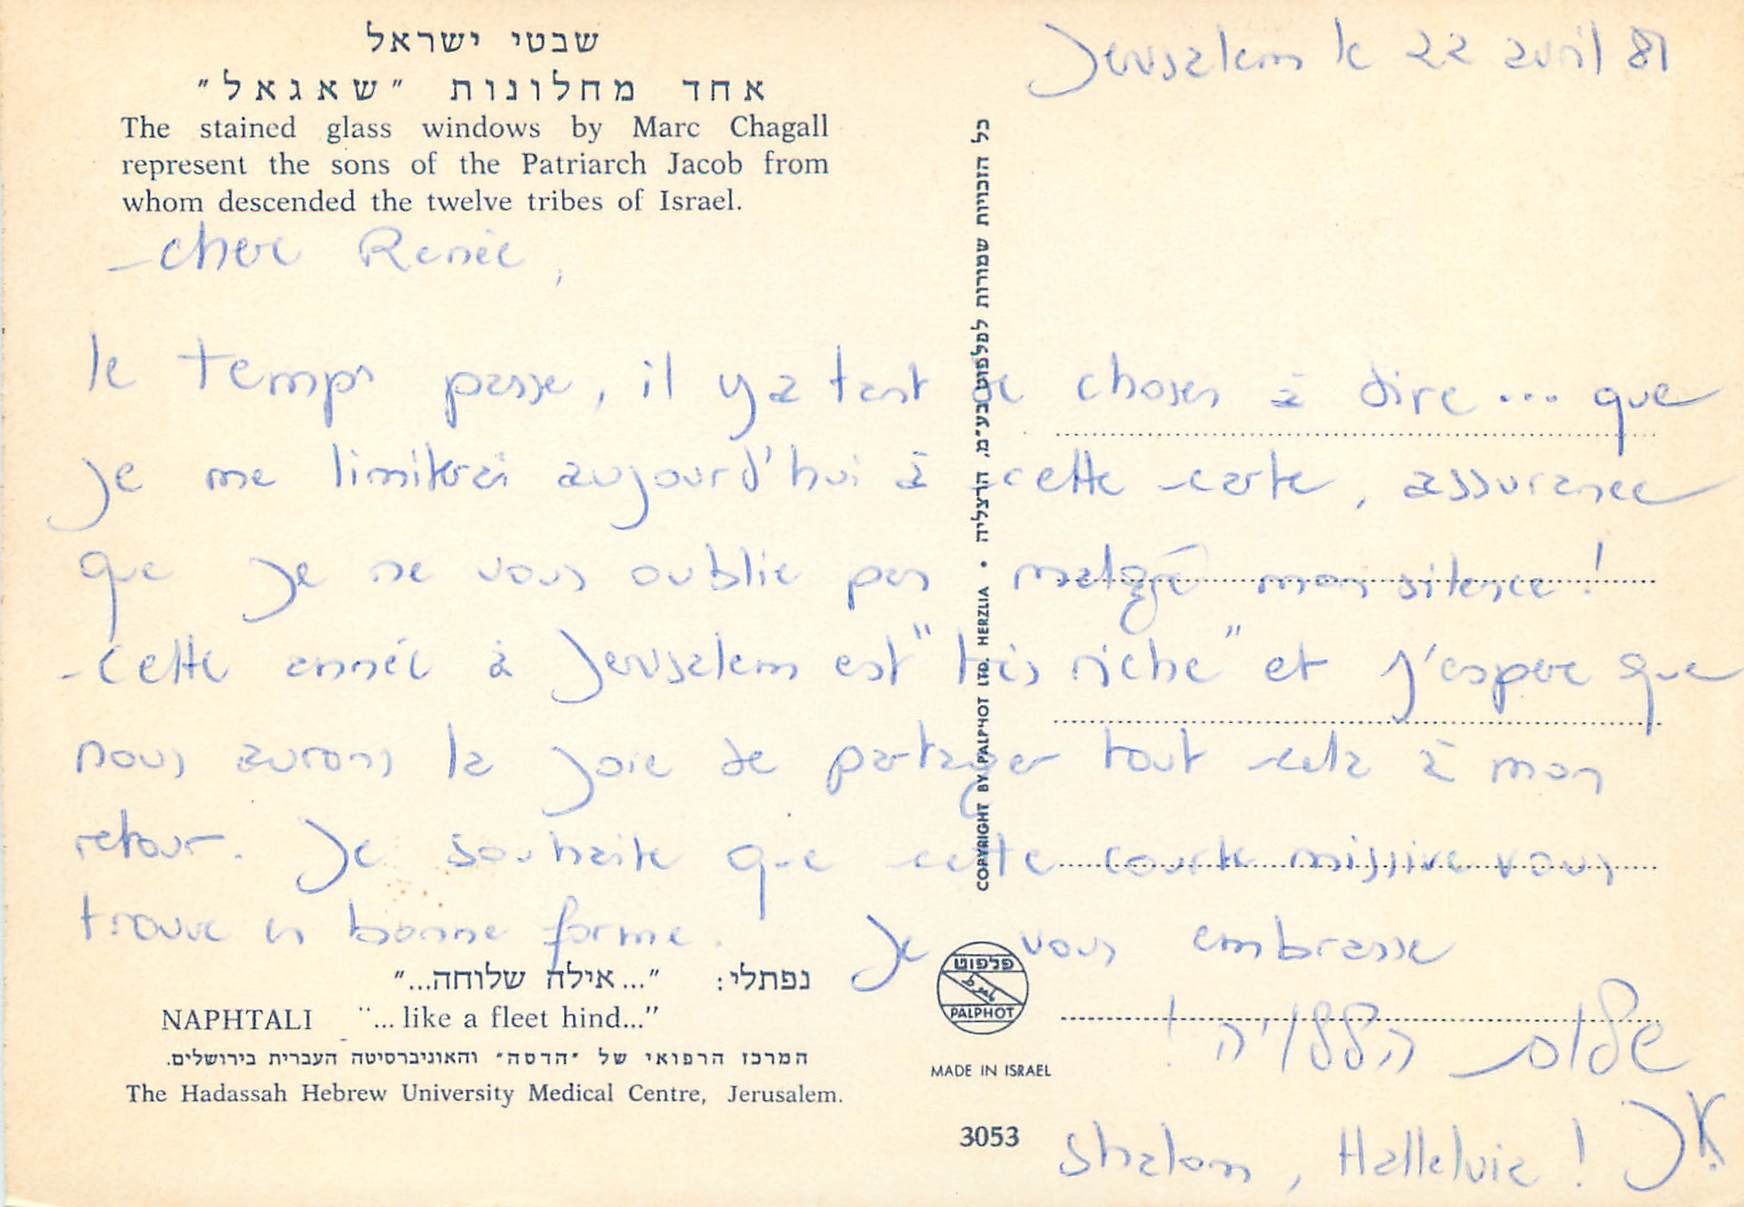 שבטי ישראל
אחד מחלונות "שאגאל"
The stained glass windows by Marc Chagall
represent the sons of the Patriarch Jacob from
whom descended the twelve tribes of Israel.
Jerusalem le 22 avril 81
cher Renée,
le temps passe, il y a tant de choses à dire... que
je me limiterai aujourd'hui à cette carte, assurance
que je ne vous oublie pas malgré mon silence!
cette année à Jerusalem est "très riche" et j'espere que
nous aurons la joie de partager tout cela à mon
retour. Je souhaite que cette courte missive vous
trouve en bonne forme. Je vous embrasse
שלום הללויה!
shalom, Halleluia!
נפתלי: "...אילה שלוחה..."
NAPHTALI "... like a fleet hind..."
המרכז הרפואי של "הדסה" והאוניברסיטה העברית בירושלים.
The Hadassah Hebrew University Medical Centre, Jerusalem.
כל הזכויות שמורות לפלפוט בע"מ, הרצליה • COPYRIGHT BY PALPHOT LTD. HERZLIA
פלפוט
PALPHOT
MADE IN ISRAEL
3053